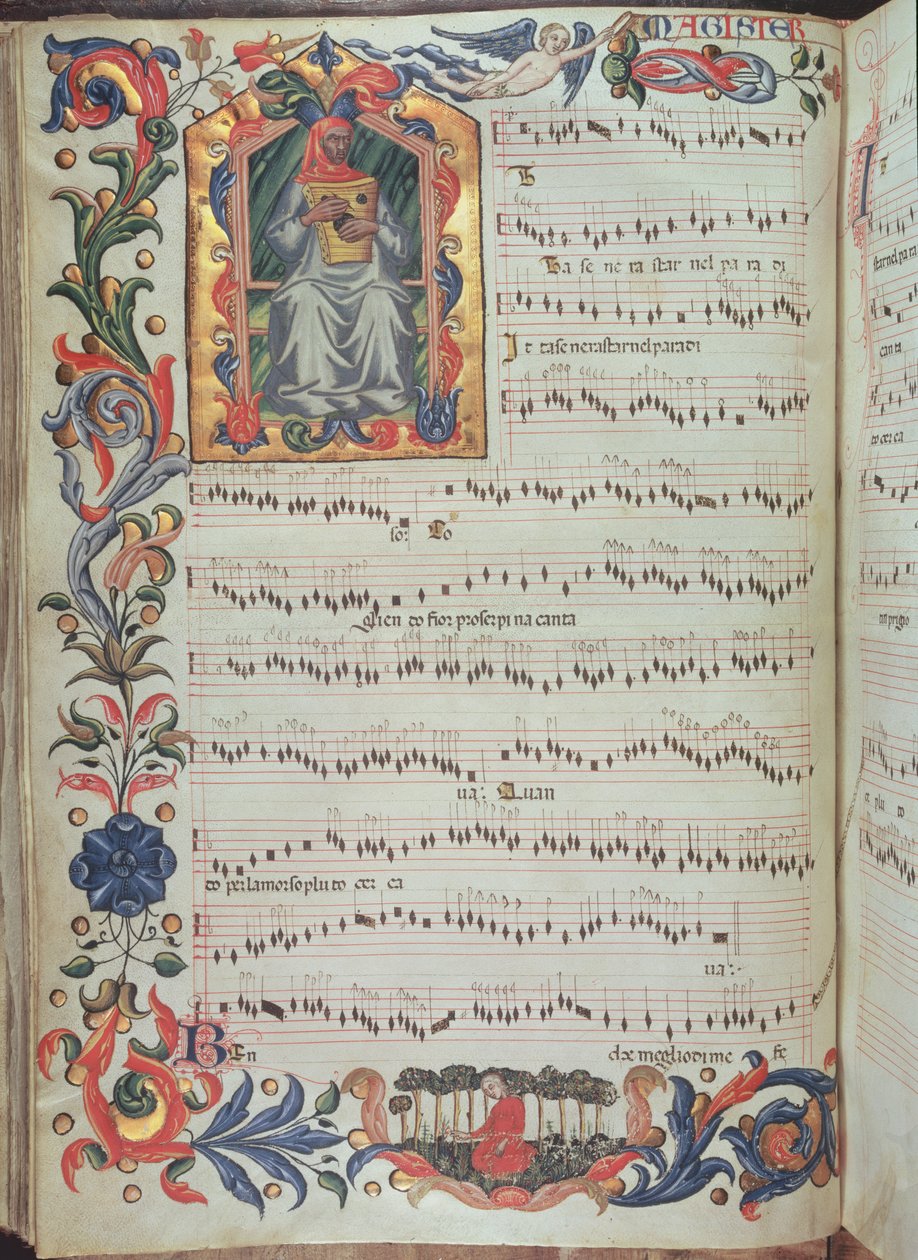 MAGISTER
Ta se ne ra star nel pa ra di
It tase nerastarnelparadi
so: Co
Glien do fior proserpi na canta
ua: Quan
do perlamorsoplu to cer ca
ua:
BEn che megliodime fe
star nel pa ra
can ta
to cer ca
ton prigio
ce plu to